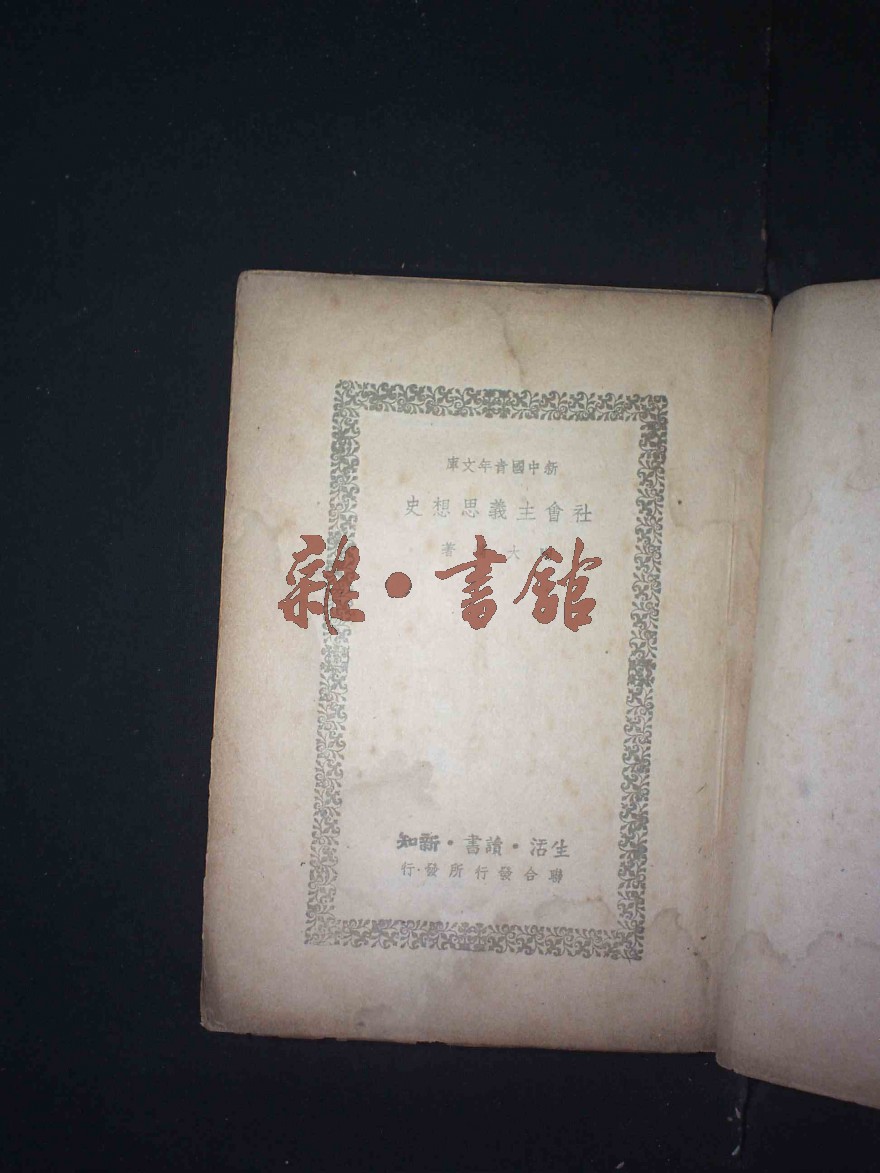 新中國青年文庫
社會主義思想史
大 著
雜·書館
生活·讀書·新知
聯合發行所發行